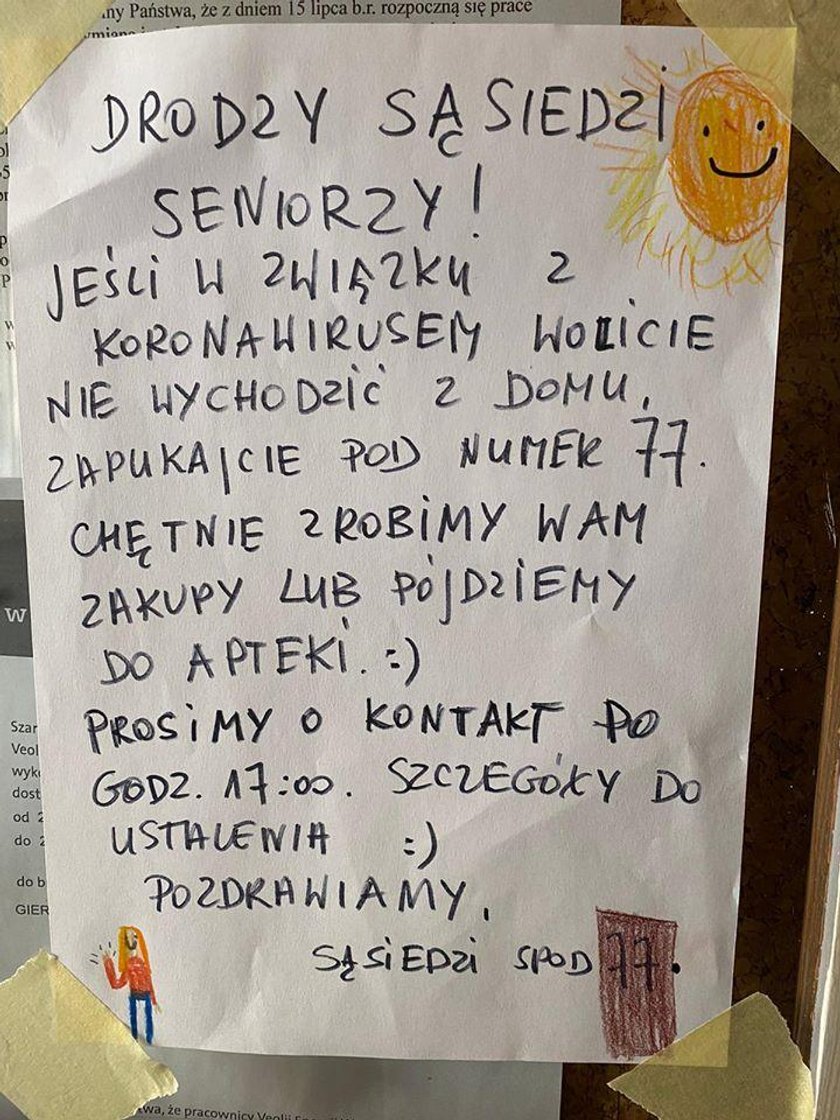 ny Państwa, że z dniem 15 lipca b.r. rozpoczną się prace
DRODZY SĄSIEDZI
SENIORZY!
JEŚLI W ZWIĄZKU Z
KORONAWIRUSEM WOLICIE
NIE WYCHODZIĆ Z DOMU,
ZAPUKAJCIE POD NUMER 77.
CHĘTNIE ZROBIMY WAM
ZAKUPY LUB PÓJDZIEMY
DO APTEKI. :)
PROSIMY O KONTAKT PO
GODZ. 17:00. SZCZEGÓŁY DO
USTALENIA :)
POZDRAWIAMY,
SĄSIEDZI SPOD 77.
W
Szar
Veol
wyk
dost
od 2
do 2
do b
GIER
twa, że pracownicy Veolii